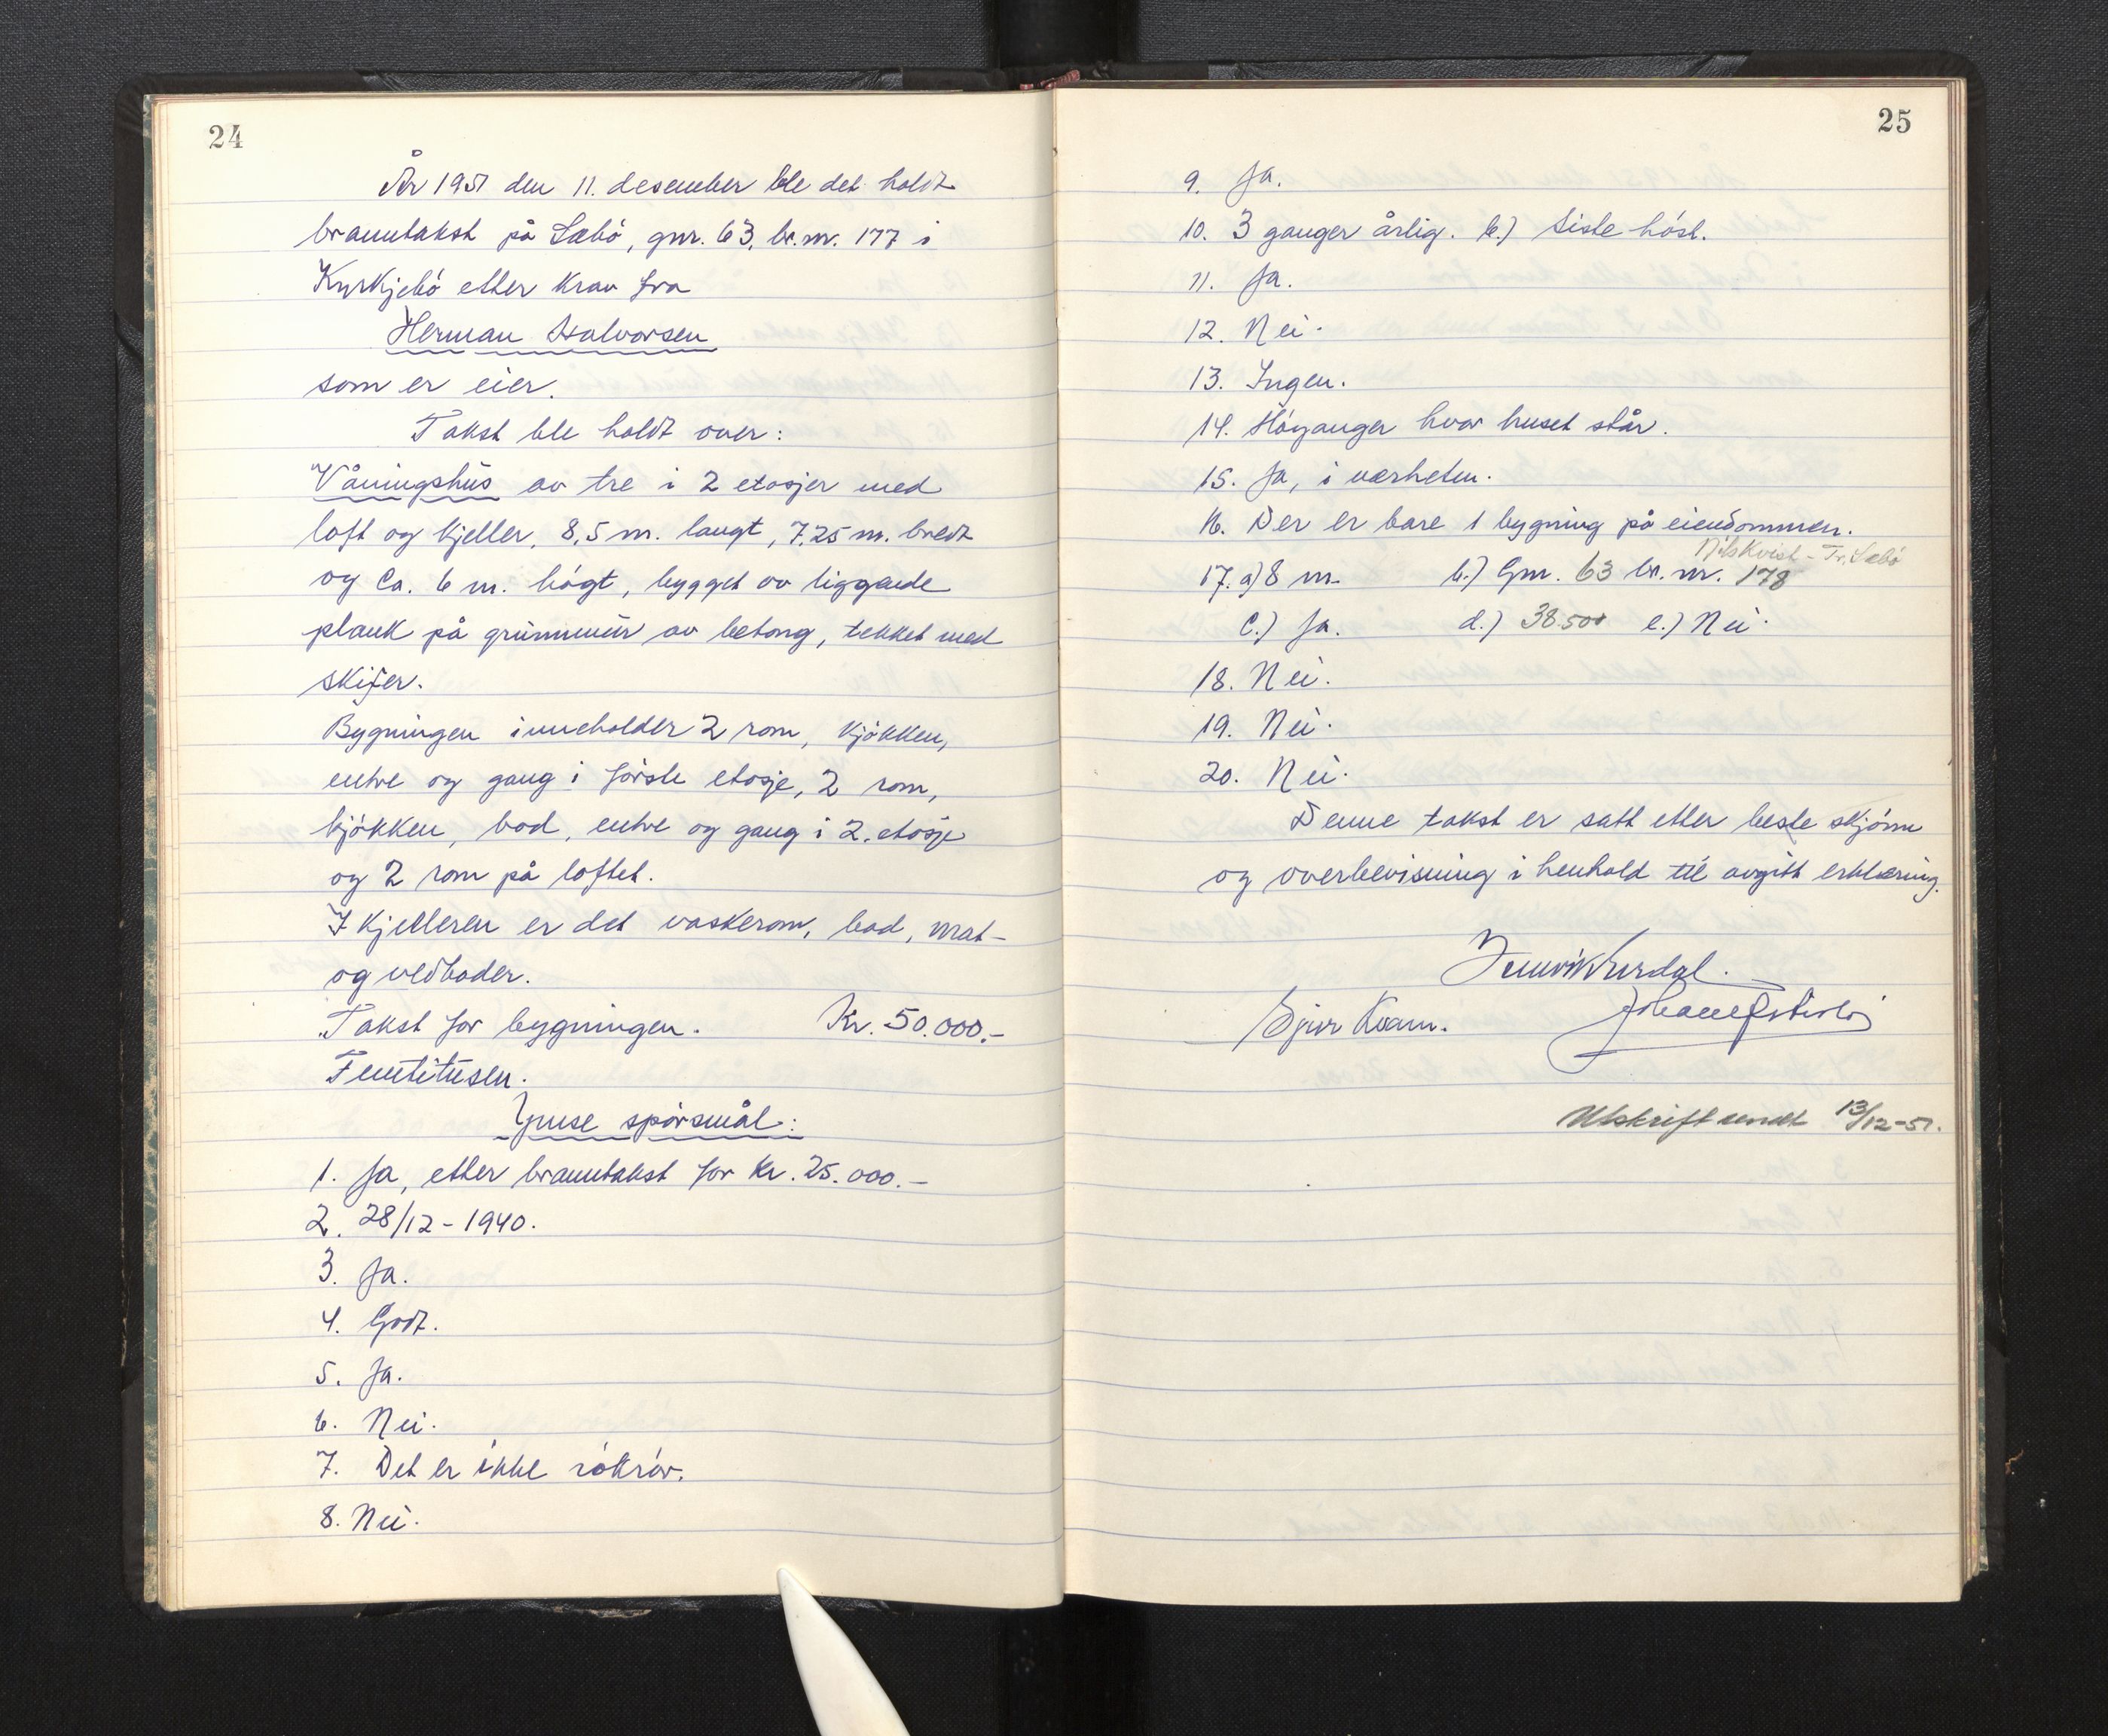 24
År 1951 den 11. desember ble det holdt
branntakst på Sæbö, gnr. 63, br.nr. 177 i
Kyrkjebö etter krav fra
Herman Halvorsen
som er eier.
Takst ble holdt over:
Våningshus av tre i 2 etasjer med
loft og kjeller, 8,5 m. langt, 7,25 m. bredt
og ca. 6 m. högt, bygget av liggande
plank på grunnmur av betong, tekket med
skifer.
Bygningen inneholder 2 rom, kjökken,
entre og gang i förste etasje, 2 rom,
kjökken, bad, entre og gang i 2. etasje
og 2 rom på loftet.
I kjelleren er det vaskerom, bad, mat-
og vedboder.
Takst for bygningen. Kr. 50.000.-
Femtitusen.
Ymse spörsmål:
1. Ja, etter branntakst for kr. 25.000.-
2. 28/12-1940.
3. Ja.
4. Godt.
5. Ja.
6. Nei.
7. Det er ikke rökrör.
8. Nei.
25
9. Ja.
10. 3 ganger årlig. b.) Siste höst.
11. Ja.
12. Nei.
13. Ingen.
14. Höyanger hvor huset står.
15. Ja, i nærheten.
16. Der er bare 1 bygning på eiendommen.
Nils Kvist - Tr. Sæbö
17. a) 8 m. b.) Gnr. 63 br. nr. 178
c.) Ja. d.) 38.500 e.) Nei.
18. Nei.
19. Nei.
20. Nei.
Denne takst er satt etter beste skjönn
og overbevisning i henhold til avgitt erklæring.
Kvam.
Utskrift sendt 13/12-51.